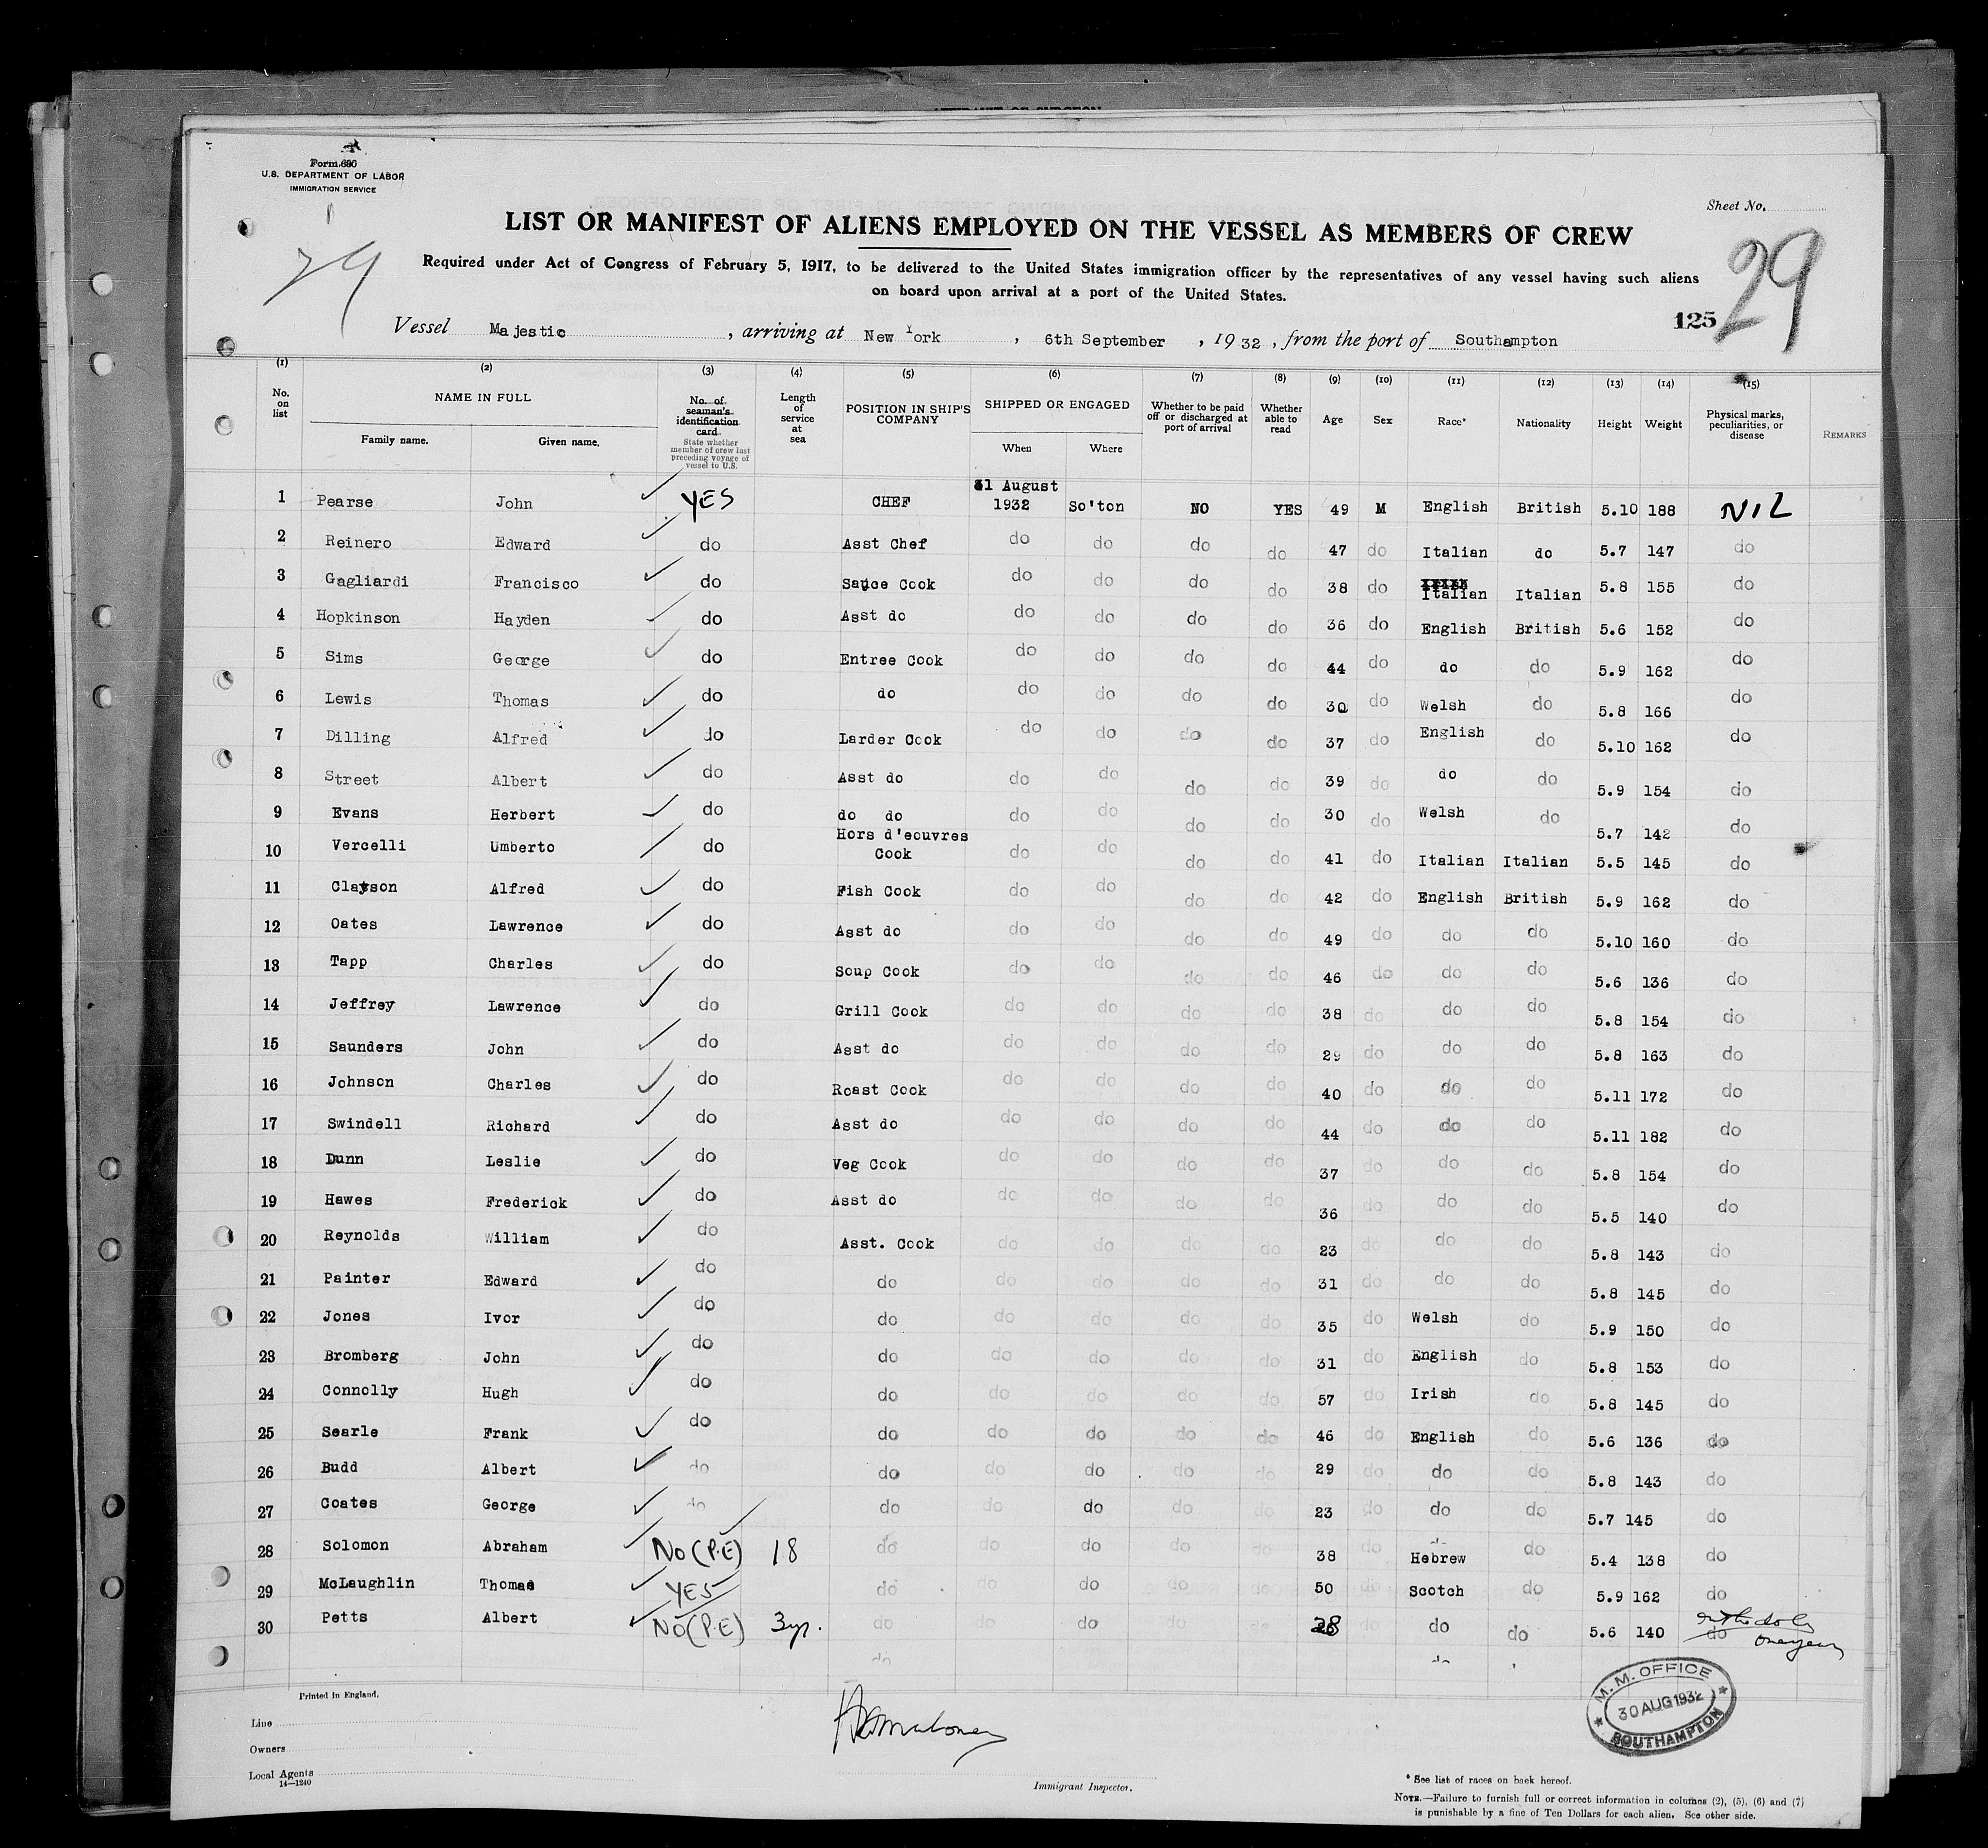 Form 690
U.S. DEPARTMENT OF LABOR
IMMIGRATION SERVICE
Sheet No.
29
29
LIST OR MANIFEST OF ALIENS EMPLOYED ON THE VESSEL AS MEMBERS OF CREW
Required under Act of Congress of February 5, 1917, to be delivered to the United States immigration officer by the representatives of any vessel having such aliens
on board upon arrival at a port of the United States.
125
Vessel Majestic , arriving at New York , 6th September , 1932 , from the port of Southampton
(1) (2) (3) (4) (5) (6) (7) (8) (9) (10) (11) (12) (13) (14) (15)
No. on list NAME IN FULL Family name. Given name. No. of seaman's identification card. State whether member of crew last preceding voyage of vessel to U.S. Length of service at sea POSITION IN SHIP'S COMPANY SHIPPED OR ENGAGED When Where Whether to be paid off or discharged at port of arrival Whether able to read Age Sex Race* Nationality Height Weight Physical marks, peculiarities, or disease REMARKS
1 Pearse John YES CHEF 31 August 1932 So'ton NO YES 49 M English British 5.10 188 NIL
2 Reinero Edward do Asst Chef do do do do 47 do Italian do 5.7 147 do
3 Gagliardi Francisco do Sauce Cook do do do do 38 do Irish Italian Italian 5.8 155 do
4 Hopkinson Hayden do Asst do do do do do 36 do English British 5.6 152 do
5 Sims George do Entree Cook do do do do 44 do do do 5.9 162 do
6 Lewis Thomas do do do do do do 30 do Welsh do 5.8 166 do
7 Dilling Alfred do Larder Cook do do do do 37 do English do 5.10 162 do
8 Street Albert do Asst do do do do do 39 do do do 5.9 154 do
9 Evans Herbert do do do do do do do 30 do Welsh do 5.7 142 do
10 Vercelli Umberto do Hors d'eouvres Cook do do do do 41 do Italian Italian 5.5 145 do
11 Clayson Alfred do Fish Cook do do do do 42 do English British 5.9 162 do
12 Oates Lawrence do Asst do do do do do 49 do do do 5.10 160 do
13 Tapp Charles do Soup Cook do do do do 46 do do do 5.6 136 do
14 Jeffrey Lawrence do Grill Cook do do do do 38 do do do 5.8 154 do
15 Saunders John do Asst do do do do do 29 do do do 5.8 163 do
16 Johnson Charles do Roast Cook do do do do 40 do do do 5.11 172 do
17 Swindell Richard do Asst do do do do do 44 do do do 5.11 182 do
18 Dunn Leslie do Veg Cook do do do do 37 do do do 5.8 154 do
19 Hawes Frederick do Asst do do do do do 36 do do do 5.5 140 do
20 Reynolds William do Asst. Cook do do do do 23 do do do 5.8 143 do
21 Painter Edward do do do do do do 31 do do do 5.8 145 do
22 Jones Ivor do do do do do do 35 do Welsh do 5.9 150 do
23 Bromberg John do do do do do do 31 do English do 5.8 153 do
24 Connolly Hugh do do do do do do 57 do Irish do 5.8 145 do
25 Searle Frank do do do do do do 46 do English do 5.6 136 do
26 Budd Albert do do do do do do 29 do do do 5.8 143 do
27 Coates George do do do do do do 23 do do do 5.7 145 do
28 Solomon Abraham No (P.E) 18 do do do do do 38 do Hebrew do 5.4 138 do
29 McLaughlin Thomas YES do do do do do 50 do Scotch do 5.9 162 do
30 Petts Albert No (P.E) 3yr. do do do do do 28 do do do 5.6 140 do
do do
Printed in England.
Line
Owners
Local Agents
14—1240
Immigrant Inspector.
M. M. OFFICE
30 AUG 1932
SOUTHAMPTON
* See list of races on back hereof.
NOTE.—Failure to furnish full or correct information in columns (2), (5), (6) and (7)
is punishable by a fine of Ten Dollars for each alien. See other side.